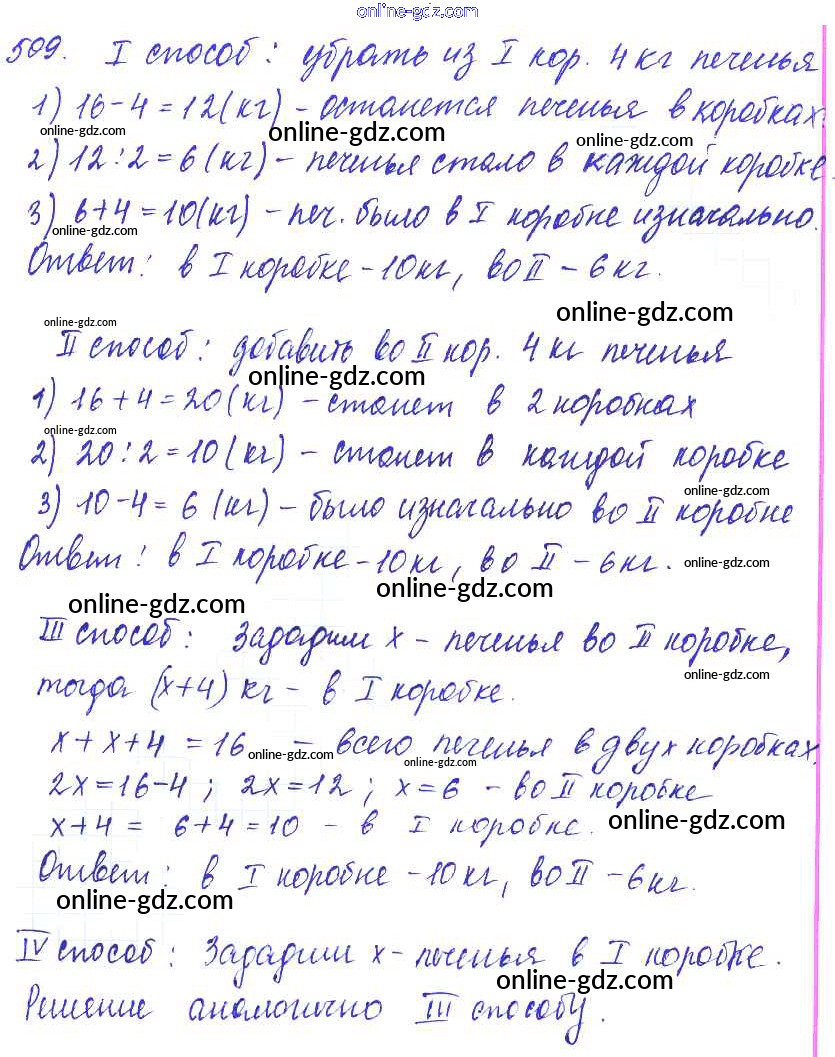 online-gdz.com
509. I способ: убрать из I кор. 4 кг печенья
1) 16-4=12(кг) - останется печенья в коробках.
online-gdz.com online-gdz.com online-gdz.com
2) 12:2=6(кг) - печенья стало в каждой коробке.
3) 6+4=10(кг) - печ. было в I коробке изначально.
online-gdz.com
Ответ: в I коробке - 10кг, во II - 6кг.
online-gdz.com
online-gdz.com
II способ: добавить во II кор. 4 кг печенья
online-gdz.com
1) 16+4=20(кг) - станет в 2 коробках
online-gdz.com
2) 20:2=10(кг) - станет в каждой коробке
online-gdz.com
3) 10-4=6(кг) - было изначально во II коробке
Ответ: в I коробке - 10кг, во II - 6кг.
online-gdz.com
online-gdz.com
online-gdz.com
III способ: Зададим x - печенья во II коробке,
online-gdz.com
тогда (x+4) кг - в I коробке.
x+x+4=16 - всего печенья в двух коробках.
online-gdz.com online-gdz.com
2x=16-4; 2x=12; x=6 - во II коробке
x+4= 6+4=10 - в I коробке.
online-gdz.com
Ответ: в I коробке - 10кг, во II - 6кг.
online-gdz.com
IV способ: Зададим x - печенья в I коробке.
online-gdz.com
Решение аналогично III способу.